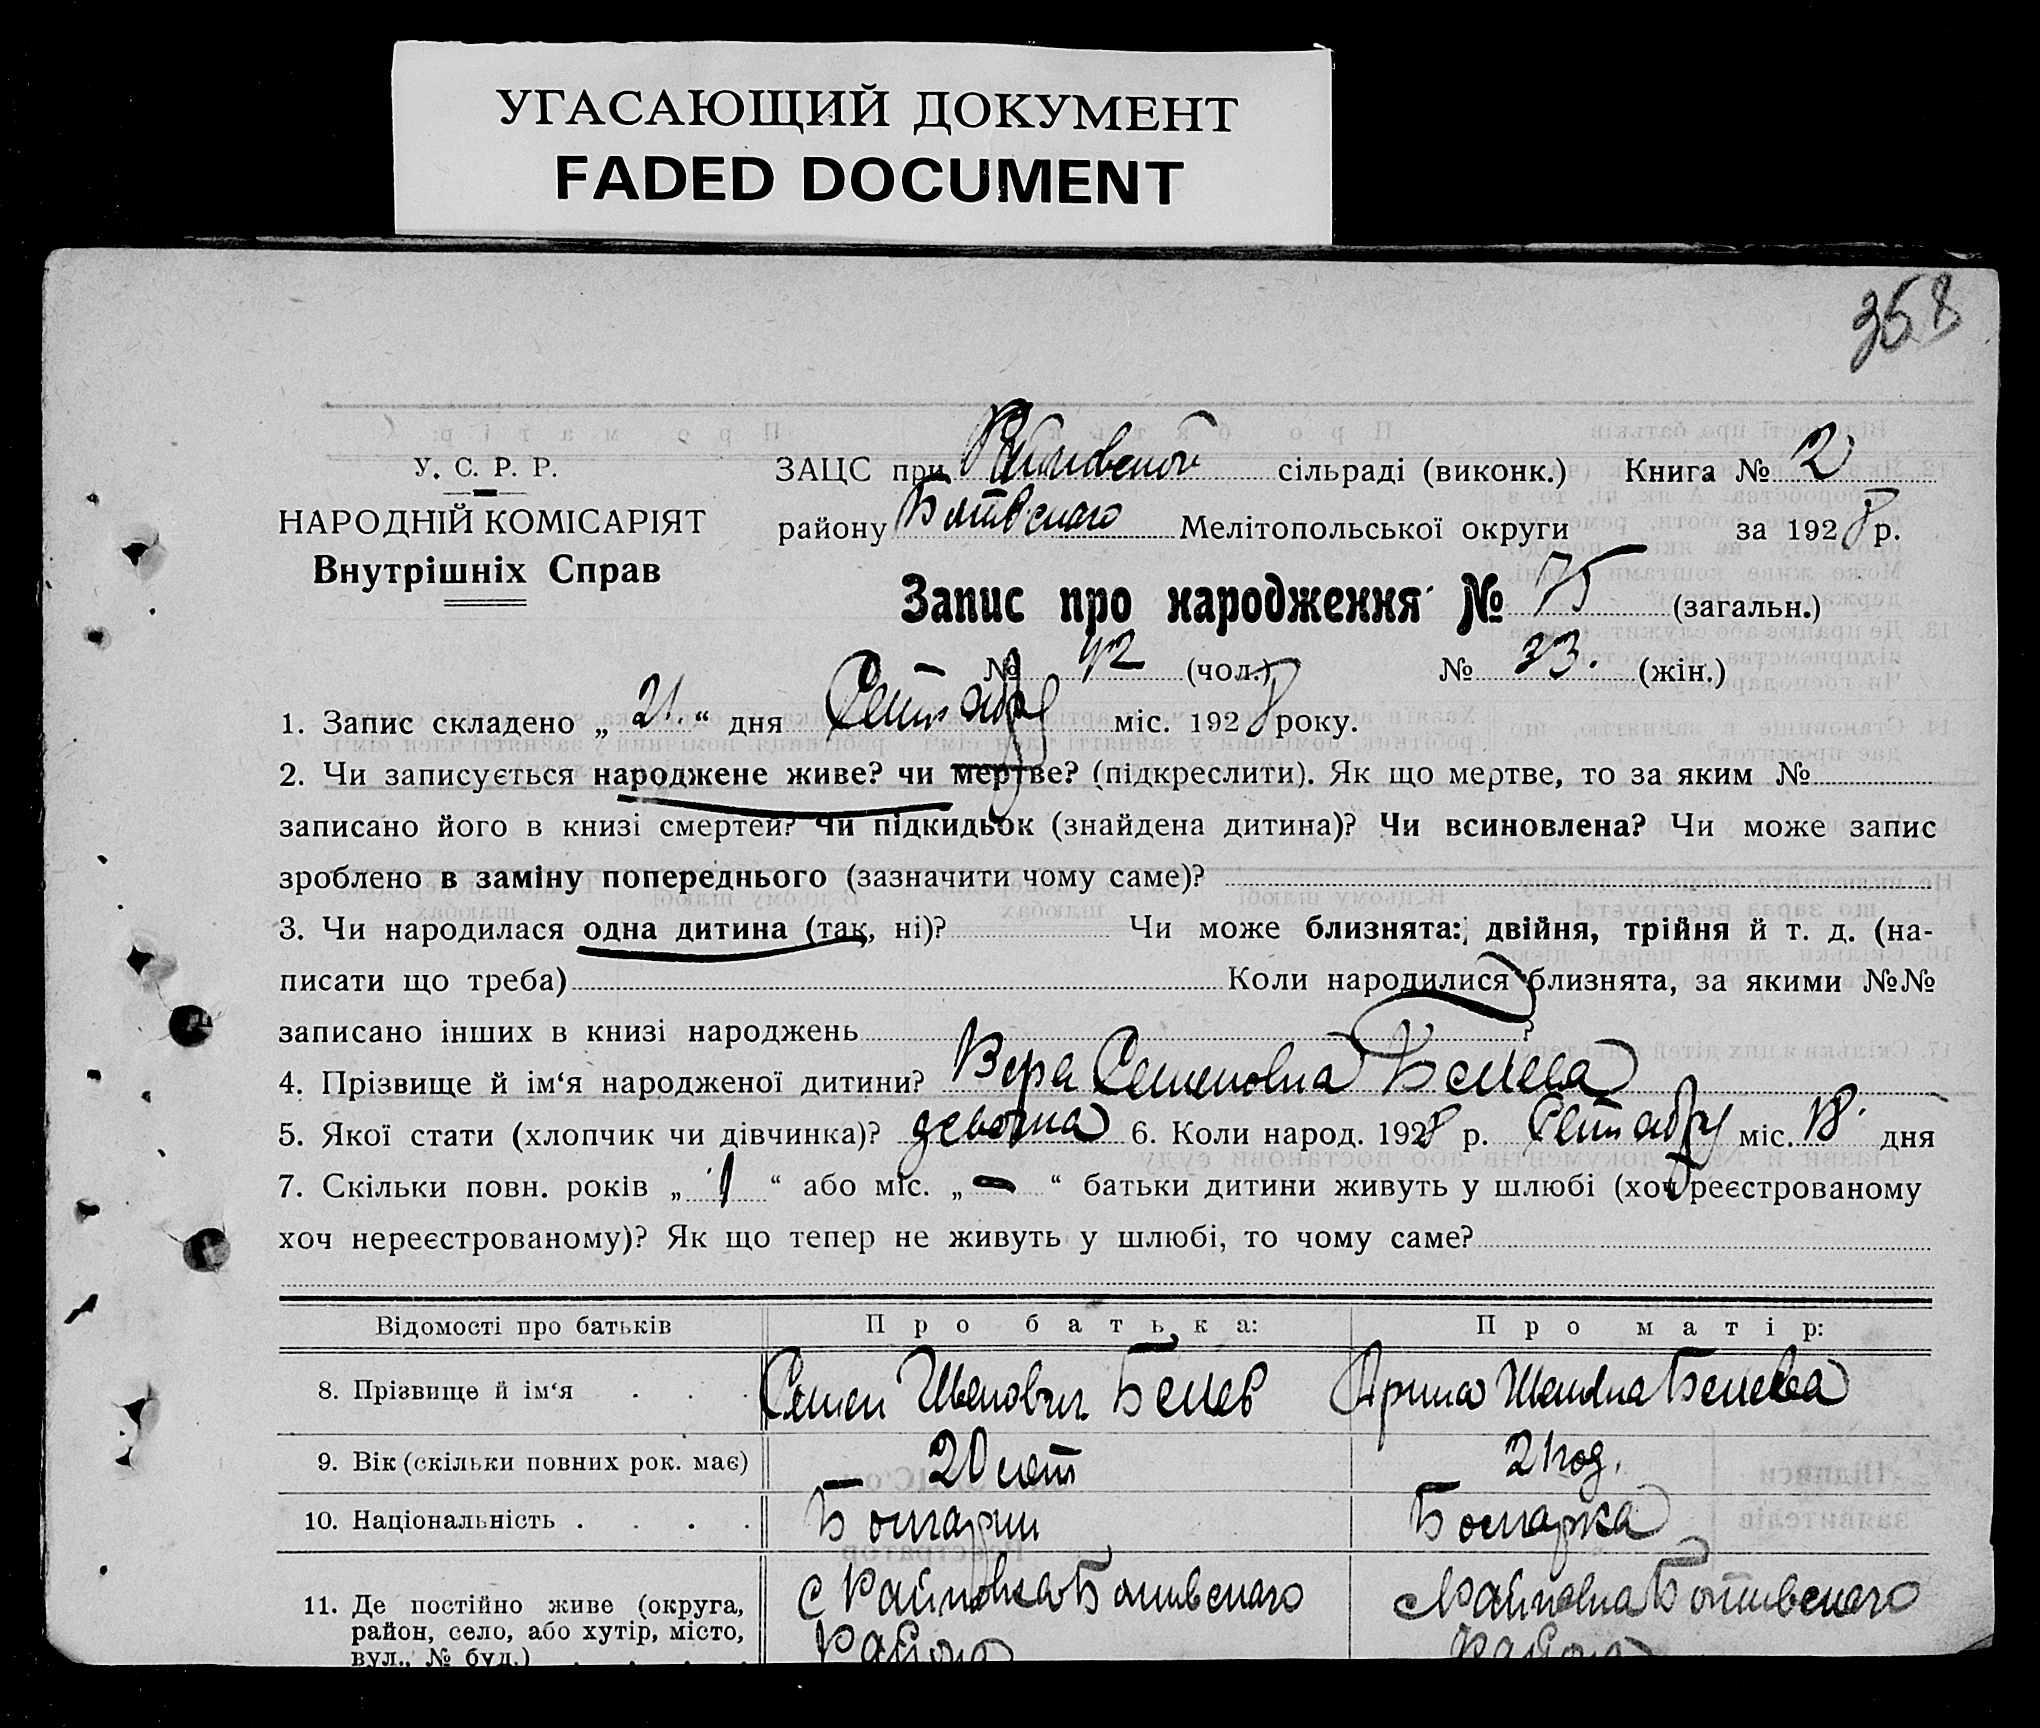 УГАСАЮЩИЙ ДОКУМЕНТ
FADED DOCUMENT
368
У. С. Р. Р.
НАРОДНІЙ КОМІСАРІЯТ
Внутрішніх Справ
ЗАЦС при сільраді (виконк.) Книга № 2
району Ботевского Мелітопольської округи за 1928 р.
Запис про народження № 75 (загальн.)
№ 42 (чол.) № 33. (жін.)
1. Запис складено „ 21. “ дня Сентября міс. 1928 року.
2. Чи записується народжене живе? чи мертве? (підкреслити). Як що мертве, то за яким №
записано його в книзі смертей? Чи підкидьок (знайдена дитина)? Чи всиновлена? Чи може запис
зроблено в заміну попереднього (зазначити чому саме)?
3. Чи народилася одна дитина (так, ні)? Чи може близнята: двійня, трійня й т. д. (на-
писати що треба) Коли народилися близнята, за якими №№
записано інших в книзі народжень ?
4. Прізвище й ім‘я народженої дитини? Вера Семеновна
5. Якої стати (хлопчик чи дівчинка)? девочка 6. Коли народ. 1928 р. Сентября міс. 18 дня
7. Скільки повн. років „ 1 “ або міс. „ — “ батьки дитини живуть у шлюбі (хоч реєстрованому
хоч нереєстрованому)? Як що тепер не живуть у шлюбі, то чому саме?
Відомості про батьків Про батька: Про матір:
8. Прізвище й ім‘я . . . Семен Иванович Арина Ивановна
9. Вік (скільки повних рок. має) 20 лет 21 год.
10. Національність . . . . Болгарин Болгарка
11. Де постійно живе (округа, с Райновка Ботевского с Райновка Ботевского
район, село, або хутір, місто, Района Района
вул., № буд.) . . . .